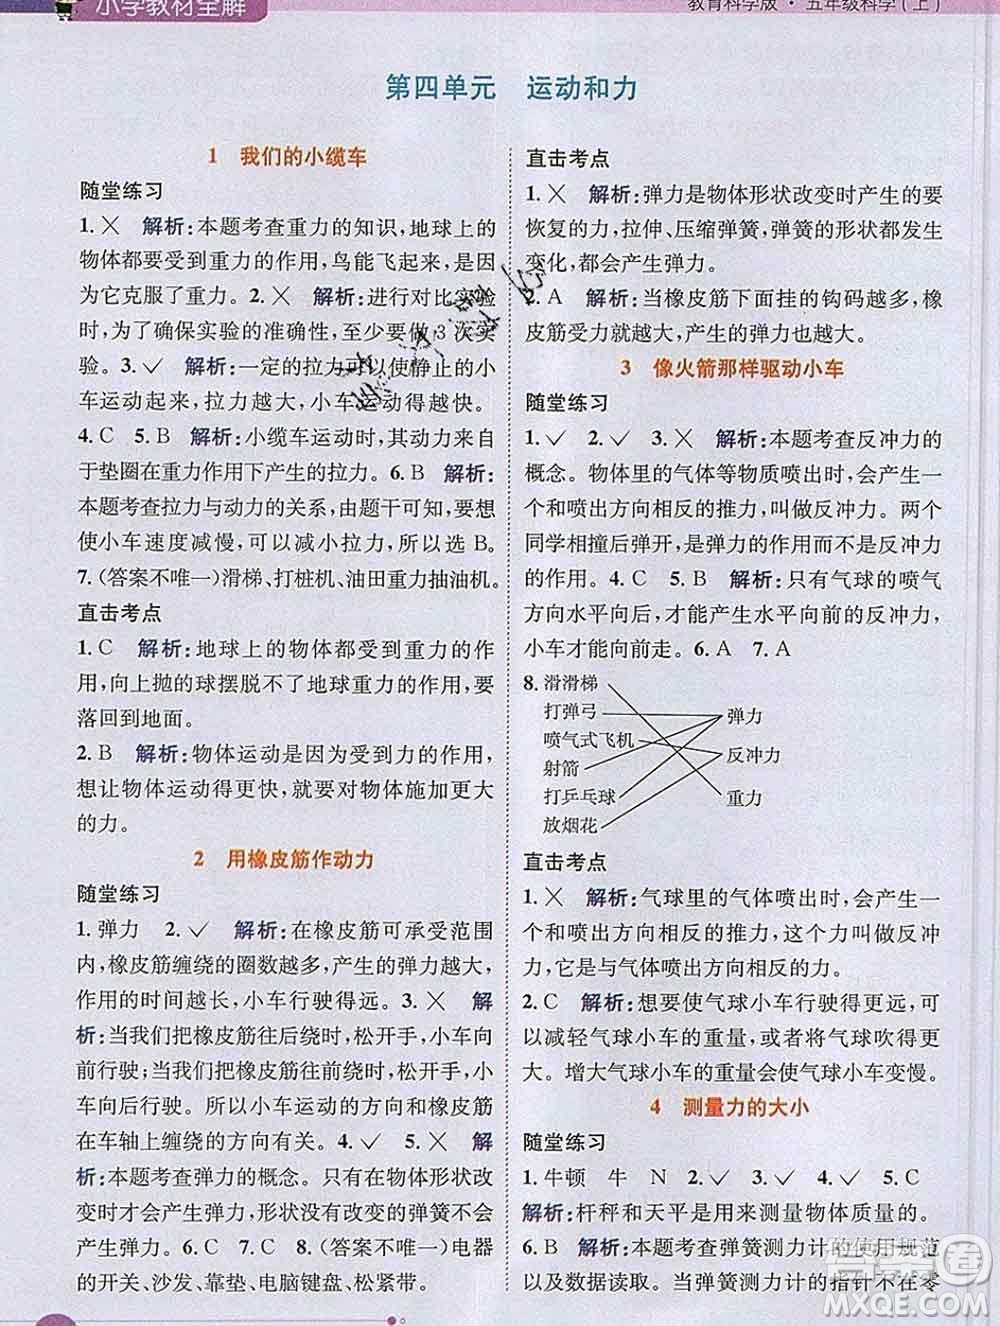 小学教材全解
教育科学版·五年级科学(上)
第四单元 运动和力
1 我们的小缆车
随堂练习
1.╳ 解析:本题考查重力的知识,地球上的
物体都要受到重力的作用,鸟能飞起来,是因
为它克服了重力。2.╳ 解析:进行对比实验
时,为了确保实验的准确性,至少要做3次实
验。3.✓ 解析:一定的拉力可以使静止的小
车运动起来,拉力越大,小车运动得越快。
4.C 5.B 解析:小缆车运动时,其动力来自
于垫圈在重力作用下产生的拉力。6.B 解析:
本题考查拉力与动力的关系,由题干可知,要想
使小车速度减慢,可以减小拉力,所以选 B。
7.(答案不唯一)滑梯、打桩机、油田重力抽油机。
直击考点
1.C 解析:地球上的物体都要受到重力的作
用,向上抛的球摆脱不了地球重力的作用,要
落回到地面。
2.B 解析:物体运动是因为受到力的作用,
想让物体运动得更快,就要对物体施加更大
的力。
2 用橡皮筋作动力
随堂练习
1.弹力 2.✓ 解析:在橡皮筋可承受范围
内,橡皮筋缠绕的圈数越多,产生的弹力越大,
作用的时间越长,小车行驶得越远。3.╳ 解
析:当我们把橡皮筋往后绕时,松开手,小车向前
行驶;当我们把橡皮筋往前绕时,松开手,小车
向后行驶。所以小车运动的方向和橡皮筋
在车轴上缠绕的方向有关。4.✓ 5.╳ 解
析:本题考查弹力的概念。只有在物体形状改
变时才会产生弹力,形状没有改变的弹簧不会
产生弹力。6.C 7.C 8.(答案不唯一)电器
的开关、沙发、靠垫、电脑键盘、松紧带。
直击考点
1.╳ 解析:弹力是物体形状改变时产生的要
恢复的力,拉伸、压缩弹簧,弹簧的形状都发生
变化,都会产生弹力。
2.A 解析:当橡皮筋下面挂的钩码越多,橡
皮筋受力就越大,产生的弹力也越大。
3 像火箭那样驱动小车
随堂练习
1.✓ 2.✓ 3.╳ 解析:本题考查反冲力的
概念。物体里的气体等物质喷出时,会产生
一个和喷出方向相反的推力,叫做反冲力。两个
同学相撞后弹开,是弹力的作用而不是反冲力
的作用。4.C 5.B 解析:只有气球的喷气
方向水平向后,才能产生水平向前的反冲力,
小车才能向前走。6.A 7.A
8.滑滑梯
打弹弓
弹力
喷气式飞机
反冲力
射箭
打乒乓球
重力
放烟花
直击考点
1.╳ 解析:气球里的气体喷出时,会产生一
个和喷出方向相反的推力,这个力叫做反冲
力,它是与气体喷出方向相反的推力。
2.C 解析:想要使气球小车行驶得更远,可
以减轻气球小车的重量,或者将气球吹得更
大。增大气球小车的重量会使气球小车变慢。
4 测量力的大小
随堂练习
1.牛顿 牛 N 2.✓ 3.✓ 4.✓ 5.C
解析:杆秤和天平是用来测量物体质量的。
6.B 解析:本题考查弹簧测力计的使用规范
以及数据读取。当弹簧测力计的指针不在零
答案圈
MXQE.COM